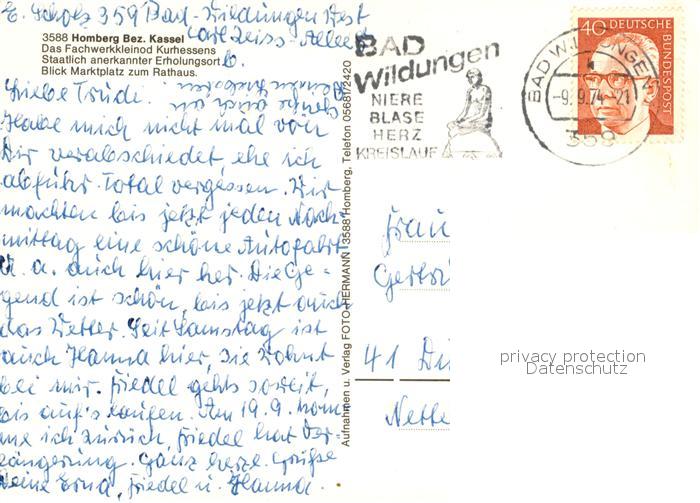 E. Scholz 359 Bad-Wildungen West
Carl Zeiss-Allee 6.
3588 Homberg Bez. Kassel
Das Fachwerkkleinod Kurhessens
Staatlich anerkannter Erholungsort
Blick Marktplatz zum Rathaus.
Liebe Trude.
Habe mich nicht mal von
Dir verabschiedet ehe ich
abfuhr. Total vergessen. Wir
machten bis jetzt jeden Nach-
mittag eine schöne Autofahrt
u. a. auch hier her. Die Ge-
gend ist schön, bis jetzt auch
das Wetter. Seit Samstag ist
auch Hanna hier, sie wohnt
bei mir. Friedel gehts soweit,
bis auf's laufen. Am 19.9. kom
me ich zurück, Friedel hat Ver-
längerung. Ganz herzl. Grüße
Deine Erna, Friedel u. Hanna.
Aufnahmen u. Verlag FOTO-HERMANN 3588 Homberg, Telefon 05681/2420
BAD
Wildungen
NIERE
BLASE
HERZ
KREISLAUF
BAD WILDUNGEN
-9.9.74-21
359
40 DEUTSCHE
BUNDESPOST
Frau
41
Nette
privacy protection
Datenschutz